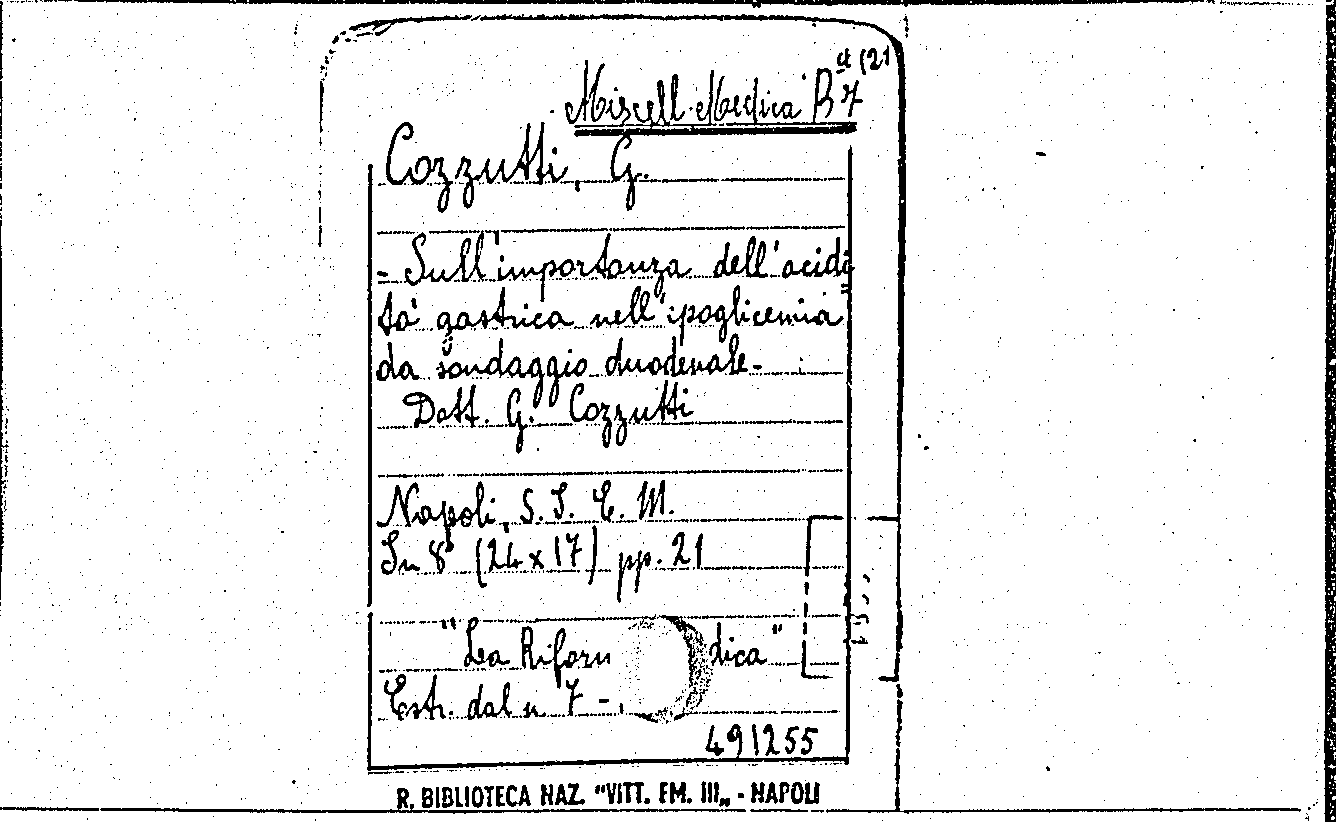 Miscell. Medica B 7 (21
Cozzutti, G.
- Sull'importanza dell'acidi
tà gastrica nell'ipoglicemia
da sondaggio duodenale -
Dott. G. Cozzutti
Napoli, S. I. E. M.
In 8° (24 x 17) pp. 21
"La Riform dica"
Estr. dal n. 7 -
491255
R. BIBLIOTECA NAZ. "VITT. EM. III„ - NAPOLI